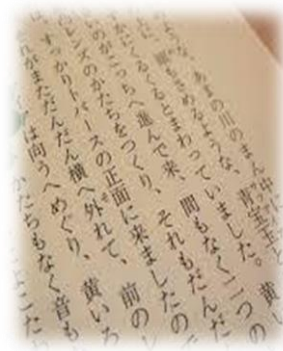 ような、あまの川のまん中に
眼もさめるような、青宝玉と黄
かにくるくるとまわっていました。黄し
のがこっちへ進んで来、間もなく二つの
レンズのかたちをつくり、それもだんだ
は、すっかりトパースの正面に来ましたの
れがまただんだん横へ外れて、前のレ
は向うへめぐり、黄いろ
かたちもなく音も
こたわ